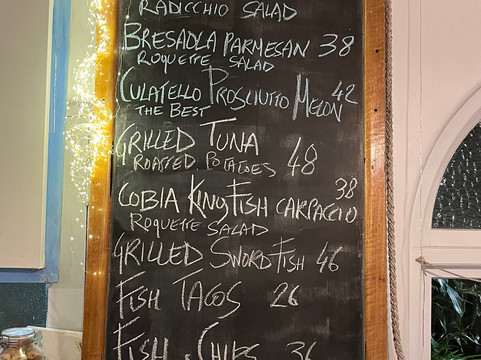 RADICCHIO SALAD
BRESAOLA PARMESAN 38
ROQUETTE SALAD
CULATELLO PROSCIUTTO MELON 42
THE BEST
GRILLED TUNA
ROASTED POTATOES 48
COBIA KING FISH CARPACCIO 38
ROQUETTE SALAD
GRILLED SWORDFISH 46
FISH TACOS 26
FISH & CHIPS 36